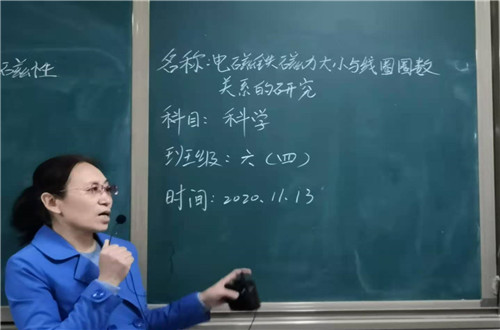 磁性
名称:电磁铁磁力大小与线圈圈数
关系的研究
科目:科学
班级:六(四)
时间:2020.11.13